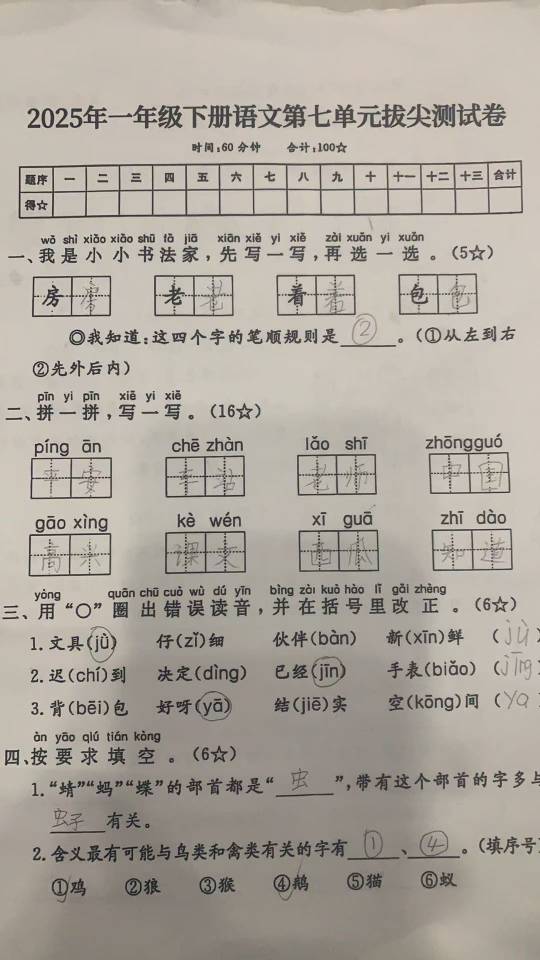 2025年一年级下册语文第七单元拔尖测试卷
时间:60 分钟 合计:100☆
题序 一 二 三 四 五 六 七 八 九 十 十一 十二 十三 合计
得☆
wǒ shì xiǎo xiǎo shū fǎ jiā xiān xiě yi xiě zài xuǎn yi xuǎn
一、我是小小书法家,先写一写,再选一选。(5☆)
房 房 老 老 着 着 包 包
◎我知道:这四个字的笔顺规则是 ② 。(①从左到右
②先外后内)
pīn yi pīn xiě yi xiě
二、拼一拼,写一写。(16☆)
píng ān chē zhàn lǎo shī zhōngguó
平安 车站 老师 中国
gāo xìng kè wén xī guā zhī dào
高兴 课文 西瓜 知道
yòng quān chū cuò wù dú yīn bìng zài kuò hào lǐ gǎi zhèng
三、用“○”圈出错误读音,并在括号里改正。(6☆)
1. 文具(jù) 仔(zǐ)细 伙伴(bàn) 新(xīn)鲜 ( jù )
2. 迟(chí)到 决定(dìng) 已经(jīn) 手表(biǎo) ( jīng
3. 背(bēi)包 好呀(yā) 结(jiē)实 空(kōng)间 ( ya
àn yāo qiú tián kòng
四、按要求填空。(6☆)
1.“蜻”“蚂”“蝶”的部首都是“ 虫 ”,带有这个部首的字多与
虫子 有关。
2. 含义最有可能与鸟类和禽类有关的字有 ① 、 ④ 。(填序号)
①鸡 ②狼 ③猴 ④鹅 ⑤猫 ⑥蚁